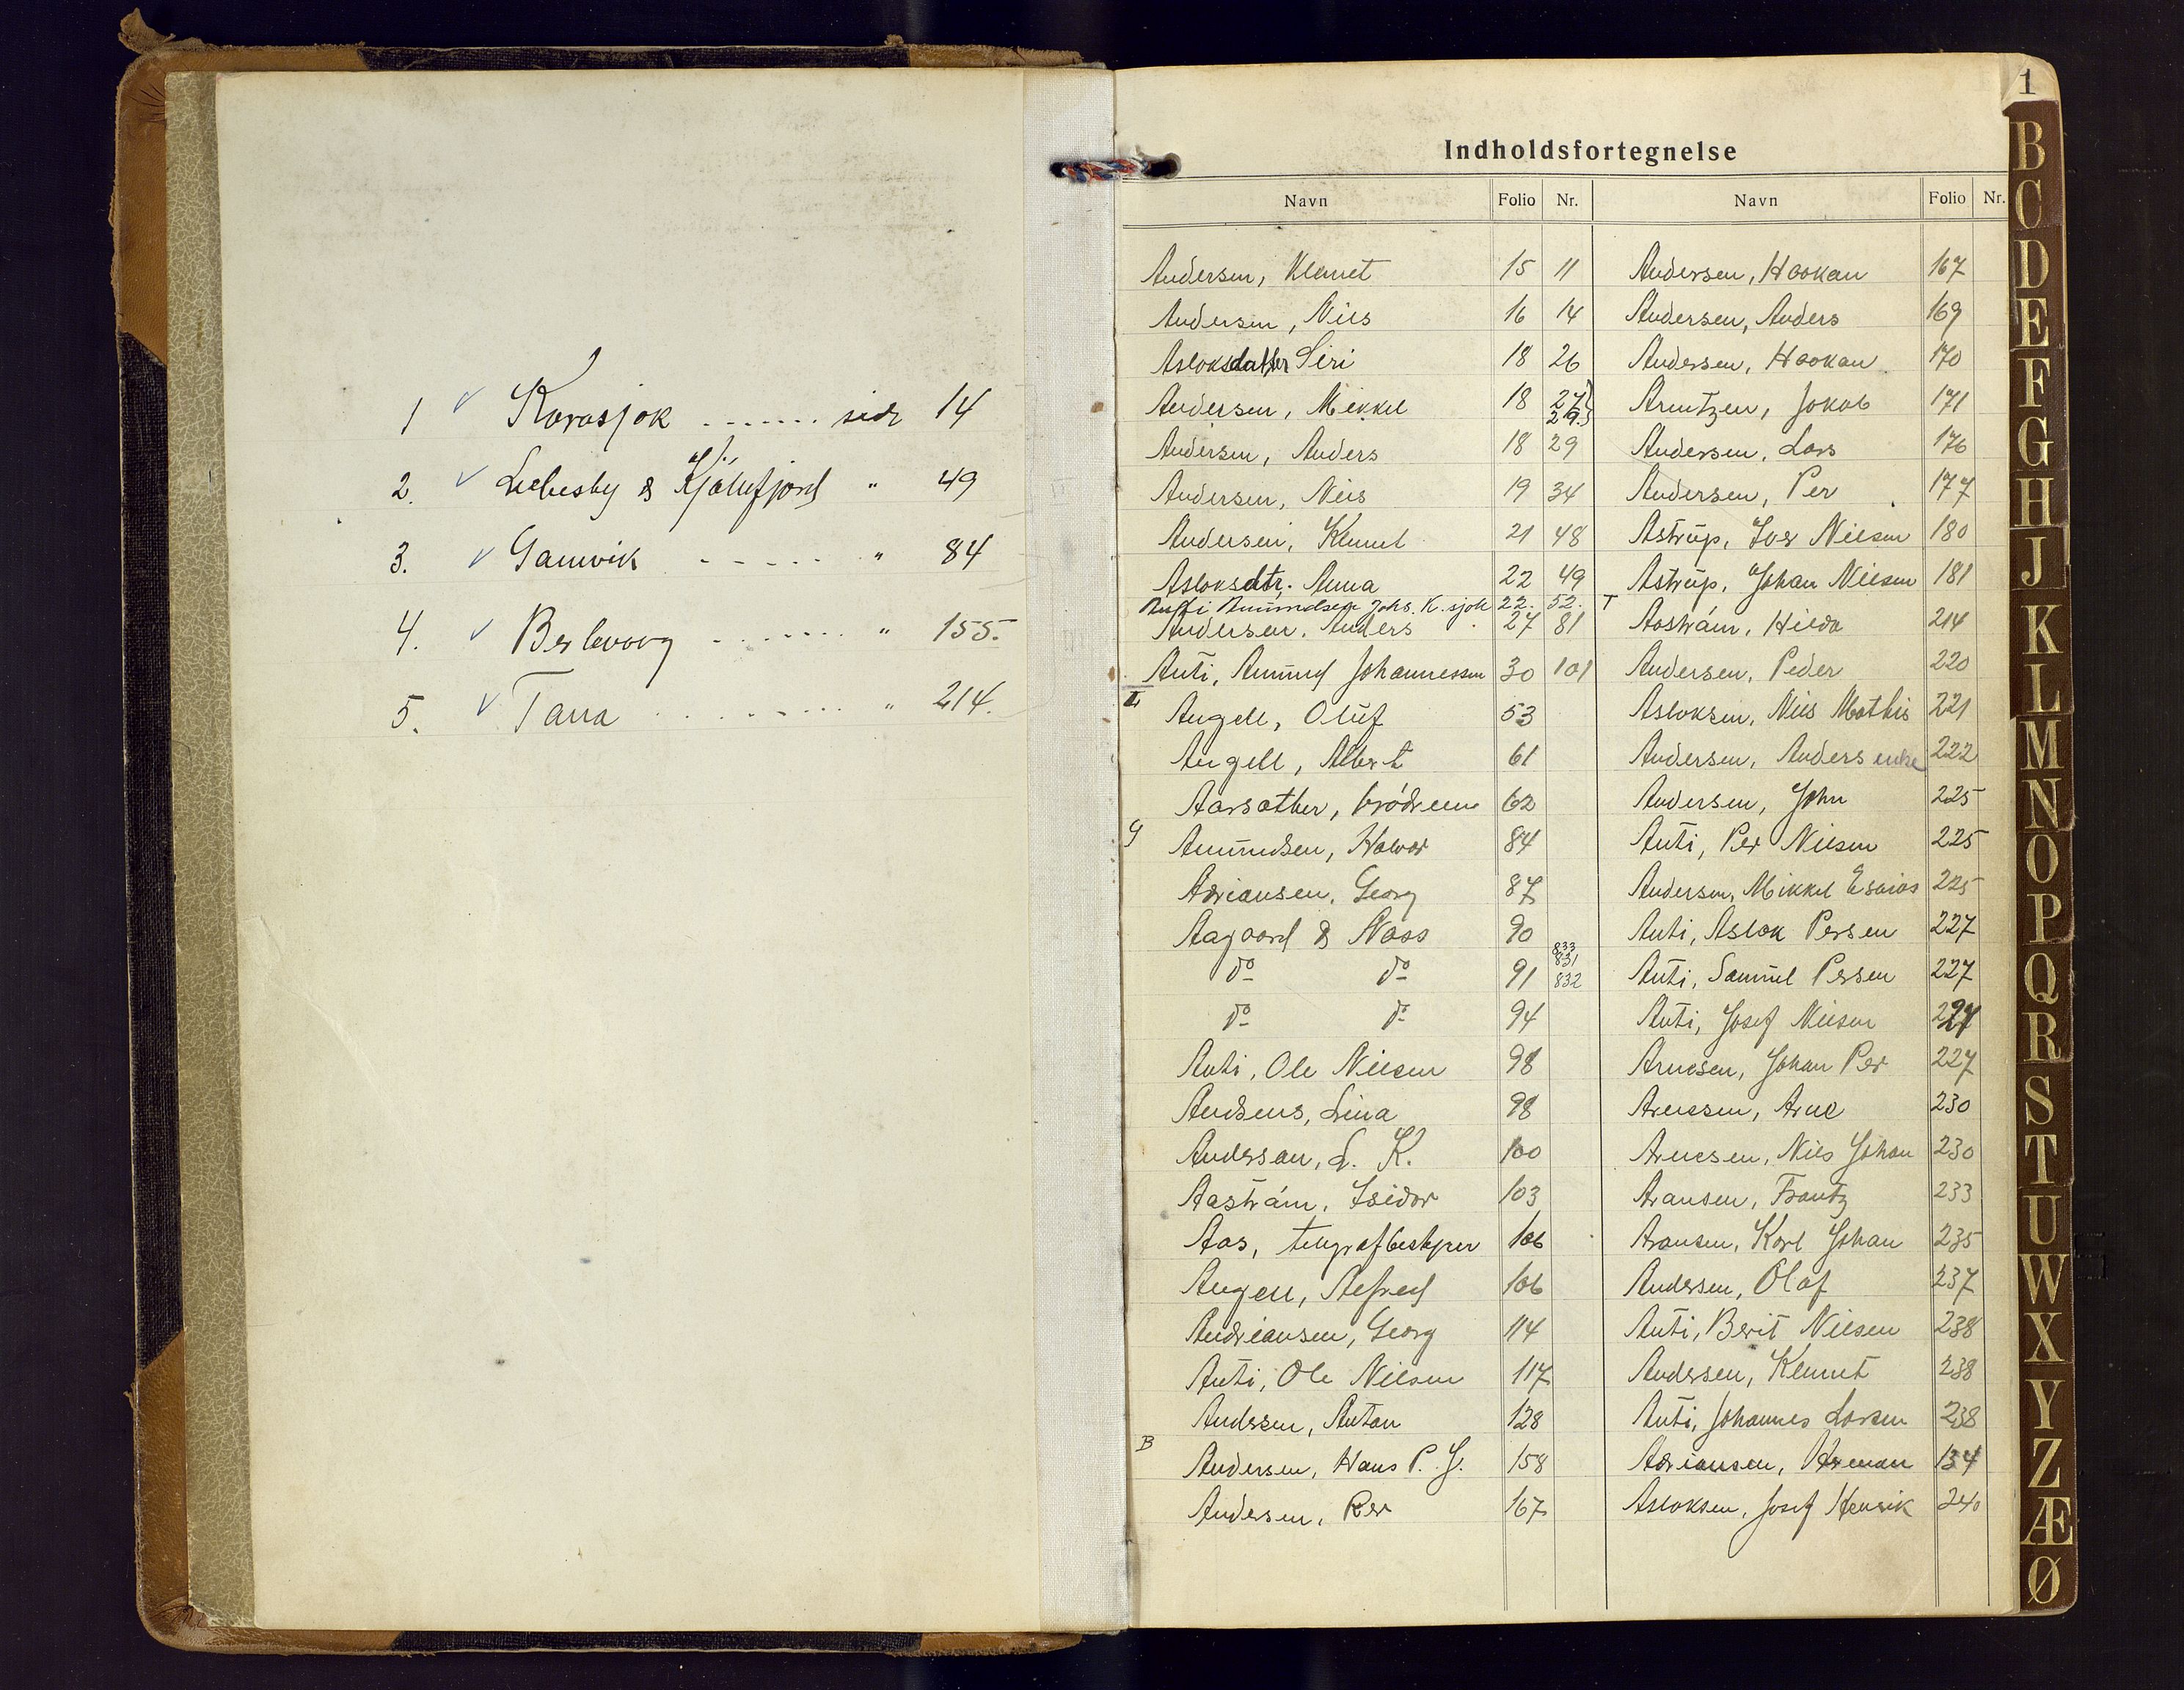 1 Karasjok ....... side 14
2. Lebesby & Kjøllefjord " 49
3. Gamvik ...... " 84
4. Berlevaag ....... " 155.
5. Tana ......... " 214.
1
Indholdsfortegnelse
Navn Folio Nr. Navn Folio Nr.
Andersen, Klemet 15 11
Andersen, Nils 16 14
Aslaksdatter Siri 18 26
Andersen, Mikkel 18 27 29.
Andersen, Anders 18 29
Andersen, Nils 19 34
Andersen, Klemet 21 48
Aslaksdtr. Anna 22 49
Antti Amundsen Johs. K.sjok 22. 52.
Andersen, Anders 27 81
Anti, Amund Johannessen 30 101
L
Angell, Oluf 53
Angell, Albert 61
Aarsæther, brødrene 62
G
Amundsen, Halvar 84
Adriansen, Georg 87
Aagaard & Naas 90
do do 91 833 831 832
do do 94
Anti, Ole Nilsen 98
Andsens, Lina 98
Andersen, L. K. 100
Aastrøm, Isidor 103
Aas, telegrafbestyrer 106
Angell, Alfred 106
Andriansen, Georg 114
Anti, Ole Nilsen 117
Andersen, Anton 128
B
Andersen, Hans P. J. 158
Andersen, Per 167
Andersen, Haakan 167
Andersen, Anders 169
Andersen, Haakan 170
Arntzen, Jakob 171
Andersen, Lars 176
Andersen, Per 177
Astrup, Iver Nilsen 180
Astrup, Johan Nilsen 181
T
Aastrøm, Hilda 214
Andersen, Peder 220
Aslaksen, Nils Mathis 221
Andersen, Anders enke 222
Andersen, John 225
Anti, Per Nilsen 225
Andersen, Mikkel Esaias 225
Anti, Aslak Persen 227
Anti, Samuel Persen 227
Anti, Josef Nilsen 227
Arnesen, Johan Per 227
Arnesen, Arne 230
Arnesen, Nils Johan 230
Aransen, Frantz 233
Aronsen, Karl Johan 235
Andersen, Olaf 237
Anti, Berit Nilsen 238
Andersen, Klemet 238
Anti, Johannes Larsen 238
Adriansen, Herman 134
Aslaksen, Josef Henrik 240
B
C
D
E
F
G
H
J
K
L
M
N
O
P
Q
R
S
T
U
W
X
Y
Z
Æ
Ø